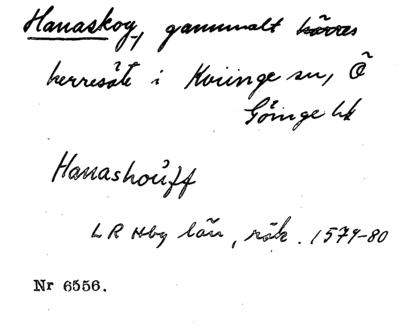 Hanaskog, gammalt
herresäte i Kviinge sn, Ö
Göinge hd
Hanashouff
LR Hbg län, räk. 1579-80
Nr 6556.